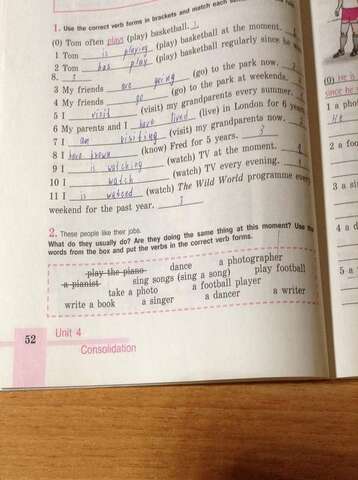 1. Use the correct verb forms in brackets and match each sen
(0) Tom often plays (play) basketball. 1
1 Tom is playing (play) basketball at the moment.
2 Tom has play (play) basketball regularly since he
8. 3
3 My friends are going (go) to the park now. 2
4 My friends go (go) to the park at weekends.
5 I visit (visit) my grandparents every summer.
6 My parents and I have lived (live) in London for 6 years.
7 I am visiting (visit) my grandparents now.
8 I have known (know) Fred for 5 years. 3
9 I is watching (watch) TV at the moment.
10 I watch (watch) TV every evening.
11 I is watced (watch) The Wild World programme every
weekend for the past year. 3
2. These people like their jobs.
What do they usually do? Are they doing the same thing at this moment? Use the
words from the box and put the verbs in the correct verb forms.
play the piano dance a photographer
a pianist sing songs (sing a song) play football
take a photo a football player
write a book a singer a dancer a writer
52 Unit 4
Consolidation
(0) He is
since he
1 a pho
He
2 a foo
3 a si
4 a d
5 a